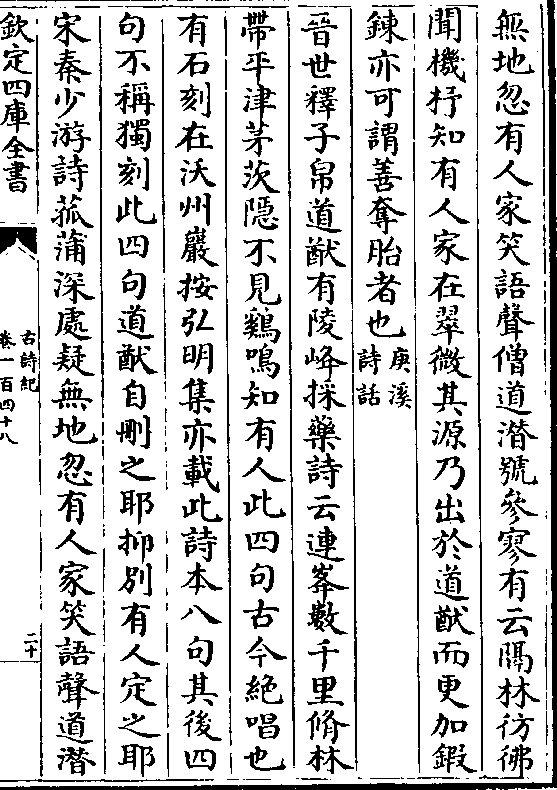 無地忽有人家笑語聲僧道潛號參寥有云隔林彷彿
聞機杼知有人家在翠微其源乃出於道猷而更加鍜
鍊亦可謂善奪胎者也
庚溪
詩話
晉世釋子帛道猷有陵峰採藥詩云連峯數千里脩林
帶平津茅茨隱不見鷄鳴知有人此四句古今絶唱也
有石刻在沃州巖按弘明集亦載此詩本八句其後四
句不稱獨刻此四句道猷自刪之耶抑別有人定之耶
宋秦少游詩菰蒲深處疑無地忽有人家笑語聲道潛
欽定四庫全書
古詩紀
卷一百四十八
二十